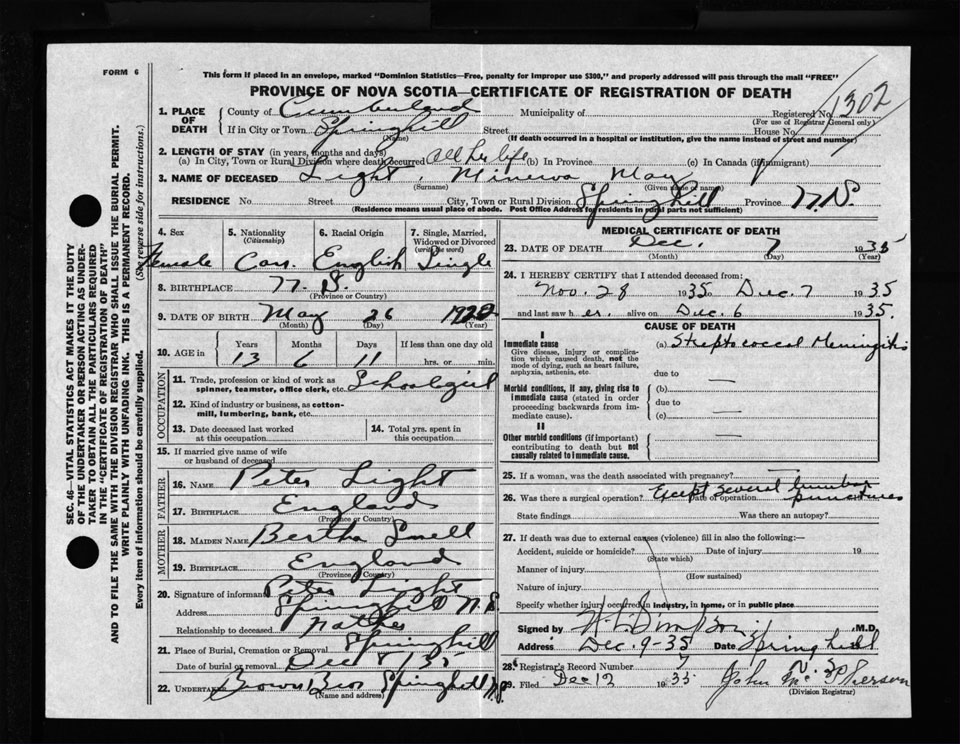 FORM 6
This form if placed in an envelope, marked "Dominion Statistics—Free, penalty for improper use $300," and properly addressed will pass through the mail "FREE"
PROVINCE OF NOVA SCOTIA—CERTIFICATE OF REGISTRATION OF DEATH
1302
SEC. 46—VITAL STATISTICS ACT MAKES IT THE DUTY
OF THE UNDERTAKER OR PERSON ACTING AS UNDER-
TAKER TO OBTAIN ALL THE PARTICULARS REQUIRED
IN THE "CERTIFICATE OF REGISTRATION OF DEATH"
AND TO FILE THE SAME WITH THE DIVISION REGISTRAR WHO SHALL ISSUE THE BURIAL PERMIT.
WRITE PLAINLY WITH UNFADING INK. THIS IS A PERMANENT RECORD.
Every item of information should be carefully supplied. (See reverse side for instructions.)
1. PLACE OF DEATH
County of Cumberland Municipality of Registered No.
(For use of Registrar General only)
If in City or Town Springhill Street House No.
(If death occurred in a hospital or institution, give the name instead of street and number)
2. LENGTH OF STAY (in years, months and days)
(a) In City, Town or Rural Division where death occurred All her life (b) In Province (c) In Canada (if immigrant)
3. NAME OF DECEASED Light, Minerva May
(Surname) (Given name or names)
RESIDENCE No. Street City, Town or Rural Division Springhill Province N.S.
(Residence means usual place of abode. Post Office Address for residents in rural parts not sufficient)
4. Sex 5. Nationality (Citizenship) 6. Racial Origin 7. Single, Married, Widowed or Divorced (write the word)
Female Can. English Single
8. BIRTHPLACE N.S.
(Province or Country)
9. DATE OF BIRTH May 26 1922
(Month) (Day) (Year)
10. AGE in Years Months Days If less than one day old
13 6 11 hrs. or min.
OCCUPATION
11. Trade, profession or kind of work as spinner, teamster, office clerk, etc. Schoolgirl
12. Kind of industry or business, as cotton-mill, lumbering, bank, etc.
13. Date deceased last worked at this occupation 14. Total yrs. spent in this occupation
15. If married give name of wife or husband of deceased
FATHER
16. NAME Peter Light
17. BIRTHPLACE England
(Province or Country)
MOTHER
18. MAIDEN NAME Bertha Snell
19. BIRTHPLACE England
(Province or Country)
20. Signature of informant Peter Light
Address Springhill N.S.
Relationship to deceased Father
21. Place of Burial, Cremation or Removal Springhill
Date of burial or removal Dec 8/35
22. UNDERTAKER Brown Bros Springhill N.S.
(Name and address)
MEDICAL CERTIFICATE OF DEATH
23. DATE OF DEATH Dec. 7 1935
(Month) (Day) (Year)
24. I HEREBY CERTIFY that I attended deceased from:
Nov. 28 1935 to Dec. 7 1935
and last saw her alive on Dec. 6 1935.
CAUSE OF DEATH
I
Immediate cause (a) Streptococcal Meningitis
Give disease, injury or complication which caused death, not the mode of dying, such as heart failure, asphyxia, asthenia, etc.
due to
Morbid conditions, if any, giving rise to immediate cause (stated in order proceeding backwards from immediate cause). (b)
due to
(c)
II
Other morbid conditions (if important) contributing to death but not causally related to immediate cause.
25. If a woman, was the death associated with pregnancy?
26. Was there a surgical operation? Except several lumbar punctures Date of operation
State findings Was there an autopsy?
27. If death was due to external causes (violence) fill in also the following:—
Accident, suicide or homicide? Date of injury 19
(State which)
Manner of injury
(How sustained)
Nature of injury
Specify whether injury occurred in industry, in home, or in public place
Signed by M.D.
Address Dec. 9-35 Date Springhill N.S.
28. Registrar's Record Number 7
29. Filed Dec 12 1935 John McPherson
(Division Registrar)